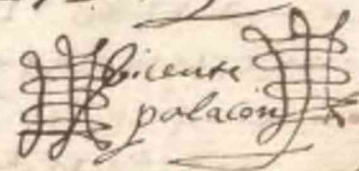 Vicente
polacon